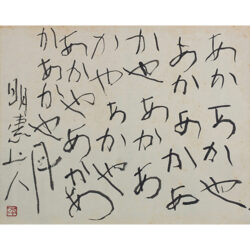 あかあかや
あかあかあ
かやあかあ
かやあかあか
あかやあ
かあかや月
明恵上人